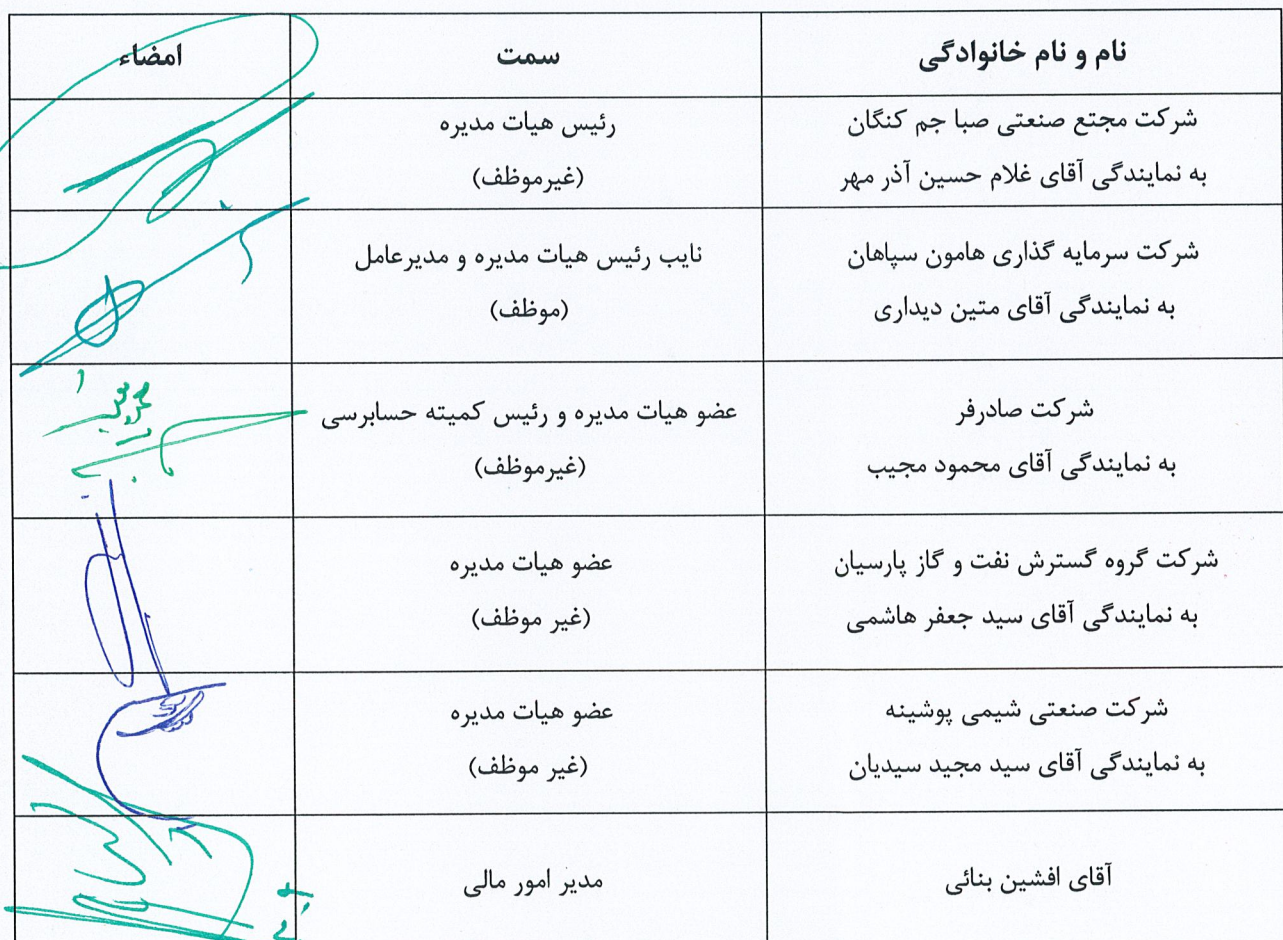 نام و نام خانوادگی
سمت
امضاء
شرکت مجتع صنعتی صبا جم کنگان
به نمایندگی آقای غلام حسین آذر مهر
رئیس هیات مدیره
(غیرموظف)
شرکت سرمایه گذاری هامون سپاهان
به نمایندگی آقای متین دیداری
نایب رئیس هیات مدیره و مدیرعامل
(موظف)
شرکت صادرفر
به نمایندگی آقای محمود مجیب
عضو هیات مدیره و رئیس کمیته حسابرسی
(غیرموظف)
شرکت گروه گسترش نفت و گاز پارسیان
به نمایندگی آقای سید جعفر هاشمی
عضو هیات مدیره
(غیر موظف)
شرکت صنعتی شیمی پوشینه
به نمایندگی آقای سید مجید سیدیان
عضو هیات مدیره
(غیر موظف)
آقای افشین بنائی
مدیر امور مالی